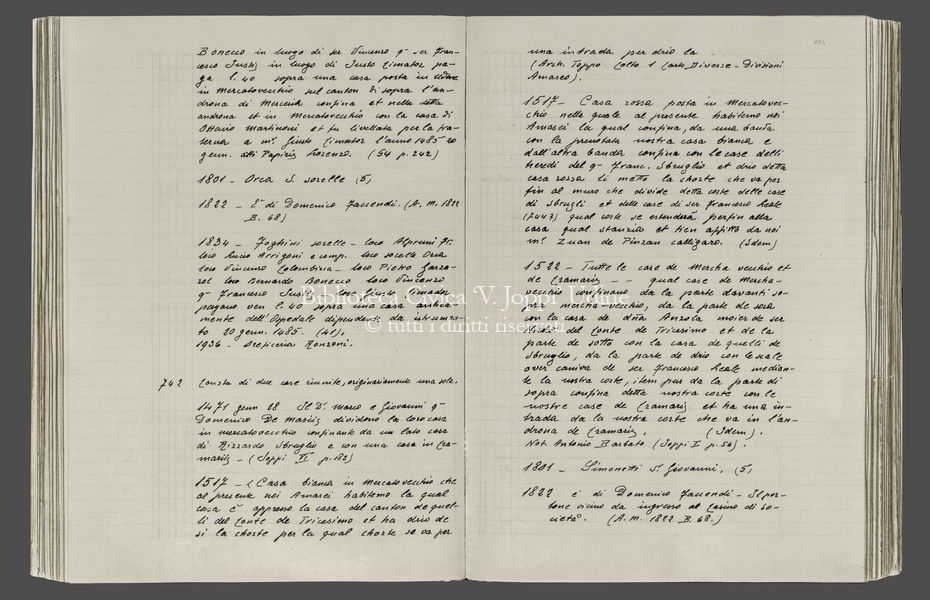 Bonecco in luogo di ser Vincenzo q.m ser Fran-
cesco Justis in luogo di Justo Cimator pa-
ga l. 40 sopra una casa posta in Udine
in Mercatovecchio sul canton di sopra l'an-
drona di Mercerie confina et nella detta
androna et in Mercatovecchio con la casa di
Ottavio Martinoni et fu livellata per la fra-
terna a m.o Giusto Cimator l'anno 1485 20
genn. atti Papirio Lorenzo. (54 p. 242)
1801 - Orca S. sorelle (5)
1822 - È di Domenico Facuendi. (A. M. 1822
B. 68)
1834 - Foghini sorelle - loco
loco Lucio Arrigoni e comp. loco sorelle Orca
loco Vincenzo Colombira - loco Pietro Garza-
rol loco Bernardo Bonecco loco Vincenzo
q.m Francesco Justis loco Giusto Cimador
pagano ven. l. 40 sopra una casa antica-
mente dell'Ospedale dipendente da istrumen-
to 20 genn. 1485. (41).
1936 - Oreficeria Ronzoni.
742 Consta di due case riunite, originariamente una sola.
1471 genn 28 Il D.r Marco e Giovanni q.m
Domenico De Masiis dividono la loro casa
in mercatovecchio confinante da un lato casa
di Rizzardo Sbruglio e con una casa in Cra-
mariis - (Joppi VI p. 182)
1517 - Casa bianca in Mercatovecchio che
al presente noi Amasei habitemo la qual
casa è appreso la casa del canton de quel-
li del Conte de Tricesimo et ha drio de
si la chorte per la qual chorte se va per
194
una intrada per drio la
(Arch. Toppo Colto 1 Carte Diverse - Divisioni
Amaseo).
1517 - Casa rossa posta in Mercatovec-
chio nella quale al presente habitemo noi
Amasei la qual confina, da una banda
con la prenotata nostra casa bianca e
dall'altra banda confina con le case delli
heredi del q.m Franc. Sbruglio et drio detta
casa rossa li metto la chorte che va per
fin al muro che divide detta corte delle case
di Sbrugli et delle case di ser Francesco Reale
(7447) qual corte se estenderà perfin alla
casa qual stanzia et tien affitto da noi
m.o Zuan de Pinzan calligaro. (Idem)
1522 - Tutte le case de Mercha vecchio et
de Cramariis - - qual case de Mercha-
vecchio confinano da la parte davanti so-
pra mercha-vecchio, da la parte de sora
con la casa de dna Anzola moier de ser
del Conte de Tricesimo et de la
parte de sotto con la casa de quelli de
Sbruglio, da la parte de drio con le scale
over caniva de ser Francesco Reale median-
te la nostra corte, item pur da la parte di
sopra confina detta nostra corte con le
nostre case de Cramariis et ha una in-
trada da la nostra corte che va in l'an-
drona de Cramariis. (Idem).
Not. Antonio Barbato (Joppi I p. 56).
1801 - Simonetti S.r Giovanni. (5)
1822 è di Domenico Facuendi - Il por-
tone vicino da ingresso al Casino di So-
cietà. (A. M. 1822 B. 68.)
Biblioteca Civica 'V. Joppi' Udine
© tutti i diritti riservati